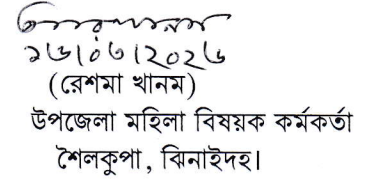 ১৬।০৩।২০২৬
(রেশমা খানম)
উপজেলা মহিলা বিষয়ক কর্মকর্তা
শৈলকুপা, ঝিনাইদহ।